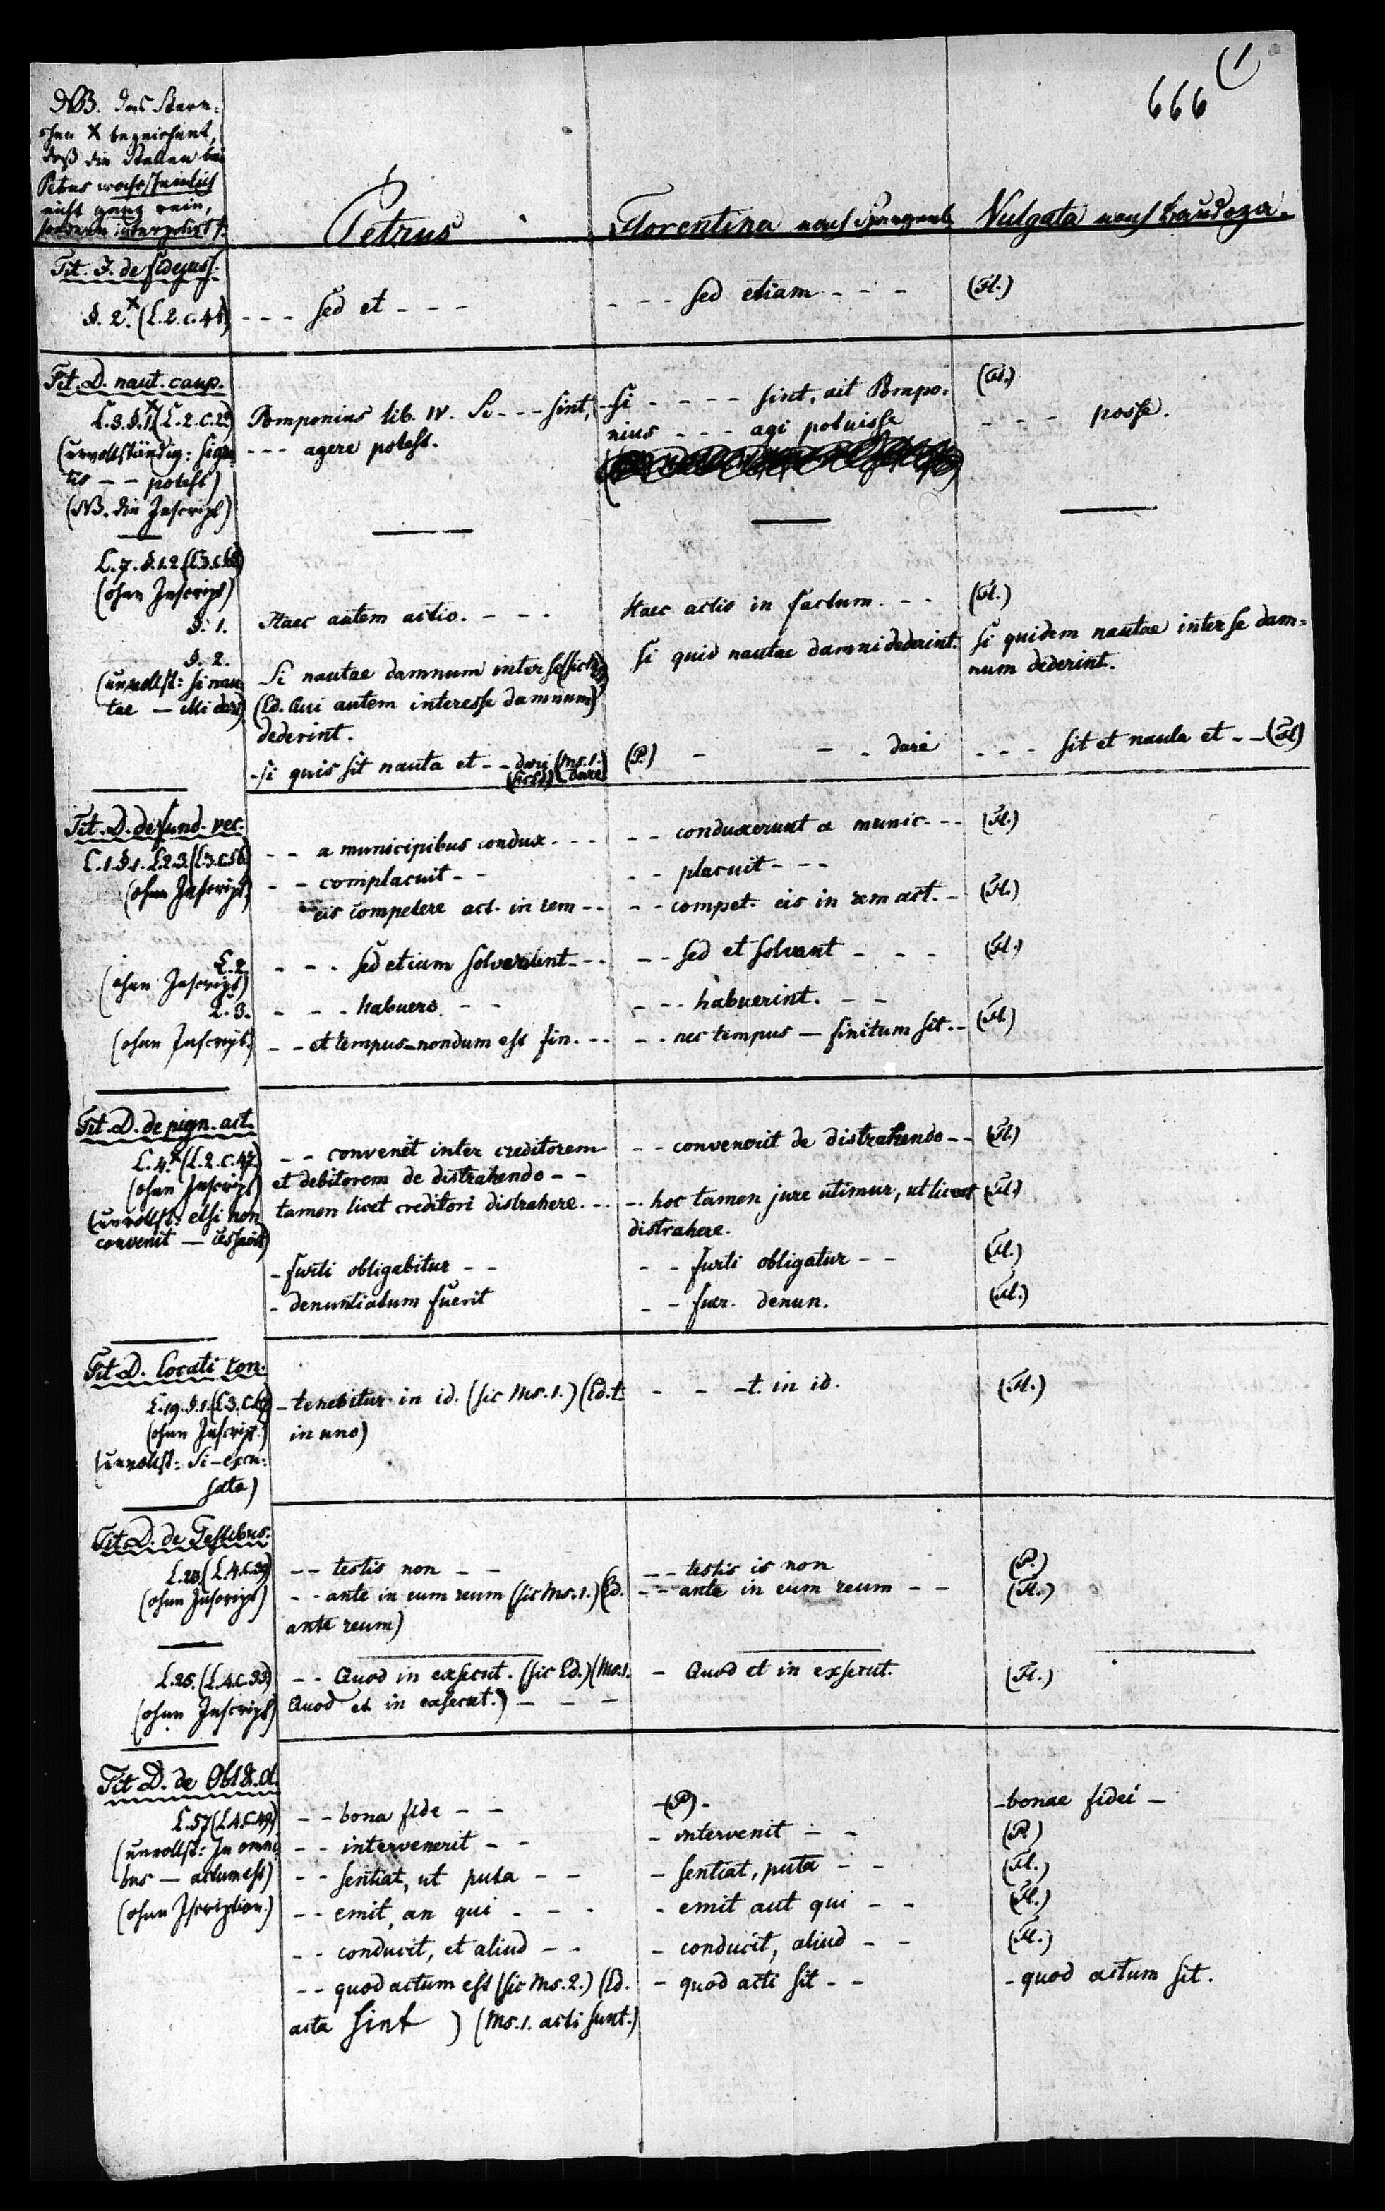 (1
666
NB. das Stern-
chen X bezeichnet,
daß die Stellen bei
Petrus wahrscheinlich
nicht ganz rein,
sondern interpolirt s.
Petrus
Florentina nach Spangenb
Vulgata nach Baudoza.
Tit. I. de fidejuss.
§. 2.X (L. 2. c. 41)
- - - sed et - - -
- - - sed etiam - - -
(Fl.)
Tit. D. naut. caup.
L. 3. §. 1X (L. 2. c.
(unvollständig: sig
tis - - potest)
(NB. die Inscript)
Pomponius lib. IV. Si - - - sint,
- - - agere potest.
- si - - - - sint, ait Pompo-
nius - - - agi potuisse
(Fl.)
- - - posse.
L. 7. §. 1. 2. (L. 3. c.
(ohne Inscript)
§. 1.
Haec autem actio. - - -
Haec actio in factum. - -
(Fl.)
§. 2.
(unvollst: si nau-
tae — illi dari)
Si nautae damnum inter se (sic
(Ed. Qui autem interesse damnum)
dederint.
- si quis sit nauta et - - dari (Ms. 1.
dare
si quid nautae damni dederint.
(P.) - - - dare
si quidem nautae inter se dam-
num dederint.
- - - sit et nauta et - - (Fl)
Tit. D. de fund. vec.
L. 1. §. 1. L. 2. 3. (L. 3. c. 56)
(ohne Inscript)
- - a municipibus condux. - - -
- - complacuit - -
eis competere act. in rem - -
- - conduxerunt a munic. - - -
- - placuit - - -
- - compet. eis in rem act. -
(Fl.)
(Fl.)
L. 2.
(ohne Inscript)
L. 3.
(ohne Inscript)
- - - sed etiam solverint - - -
- - - habuero - -
- - et tempus - nondum est fin. - -
- - sed et solvant - - -
- - - habuerint. - -
- - nec tempus — finitum sit. -
(Fl.)
(Fl.)
Tit. D. de pign. act.
L. 4.X (L. 2. c. 47)
(ohne Inscript)
(unvollst: etsi non
convenit — cessavit)
- - convenit inter creditorem
et debitorem de distrahendo - -
tamen licet creditori distrahere. - -
- furti obligabitur - -
- denuntiatum fuerit
- - convenerit de distrahendo - -
- - hoc tamen jure utimur, ut liceat
distrahere.
- - furti obligatur - -
- - fuer. denun.
(Fl)
(Fl.)
(Fl.)
(Fl.)
Tit D. Locati con.
L. 19. §. 1. (L. 3. c.
(ohne Inscript.)
(unvollst: Si - scru-
sata)
- tenebitur in id. (sic Ms. 1.) (Ed. t.
in uno)
- - - t. in id.
(Fl.)
Tit D. de Testibus.
L. 20. (L. 4. c. 39)
(ohne Inscript)
- - testis non - -
- - ante in eum reum (sic Ms. 1.) (Ed.
ante reum)
- - testis is non
- - ante in eum reum - -
(P.)
(Fl.)
L. 25. (L. 4. c. 33)
(ohne Inscript)
- - Quod in exsecut. (sic Ed.) (Ms. 1.
Quod et in exsecut.) - - -
- Quod et in exsecut.
(Fl.)
Tit D. de Obl & a.
L. 57 (L. 4. c. 49)
(unvollst: In omni-
bus — actum est)
(ohne Iscription.)
- - bona fide - -
- - intervenerit - -
- - sentiat, ut puta - -
- - emit, an qui - - -
- - conducit, et aliud - -
- - quod actum est (sic Ms. 2.) (Ed.
acta sint ) (Ms. 1. acti sunt.)
- (P) -
- intervenit - -
- sentiat, puta - -
- emit aut qui - -
- conducit, aliud - -
- quod acti sit - -
- bonae fidei -
(P.)
(Fl.)
(Fl.)
(Fl.)
- quod actum sit.